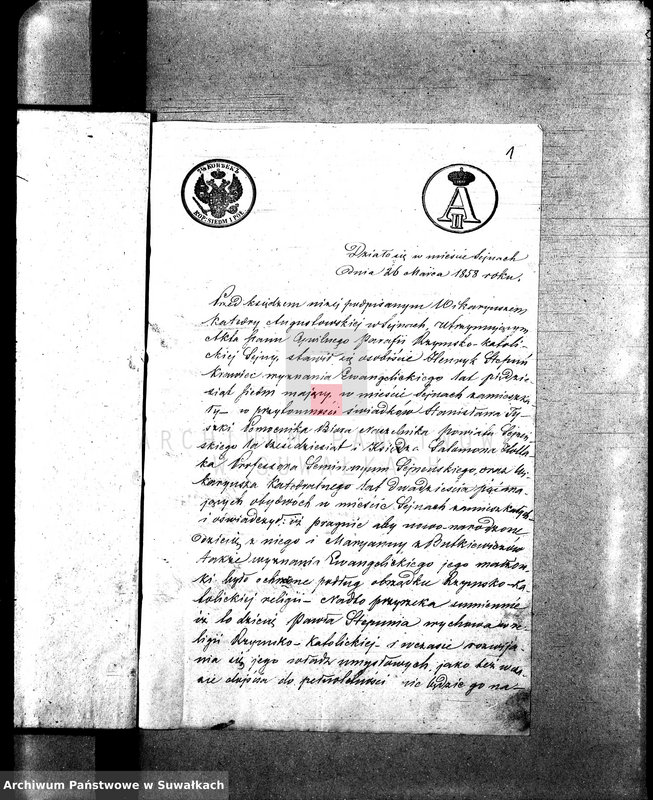 1
7½ КОПѢЕКЪ
KOP. SIEDM I PÓŁ
A II
Działo się w mieście Sejnach
dnia 26 Marca 1858 roku.
Przed księdzem niżej podpisanym Wikaryuszem
Katedry Augustowskiej w Sejnach, utrzymującym
Akta stanu Cywilnego Parafii Rzymsko-Katoli-
ckiej Sejny, stawił się osobiście Henryk
krawiec wyznania Ewangelickiego lat pięćdzie-
siąt siedm mający, w mieście Sejnach zamieszka-
ły - w przytomności świadków Stanisława
Pomocnika Biura Naczelnika Powiatu Sejneń-
skiego lat sześćdziesiąt i Księdza Salomona
Professora Seminaryum Sejneńskiego, oraz Wi-
karyusza Katedralnego lat dwadzieścia
jących obydwóch w mieście Sejnach zamieszkałych
i oświadczył: iż pragnie aby nowo-narodzone
Dziecię z niego i Maryanny z Butkiewiczów
także wyznania Ewangelickiego jego małżon-
ki było ochrzcone podług obrządku Rzymsko-Ka-
tolickiej religii - Nadto przyrzeka sumiennie
iż to dziecię Pawła wychowa w re-
ligii Rzymsko-Katolickiej i wczasie rozwija-
nia się jego władz umysłowych, jako też w ra-
zie dojścia do pełnoletności nie będzie go na-
Archiwum Państwowe w Suwałkach